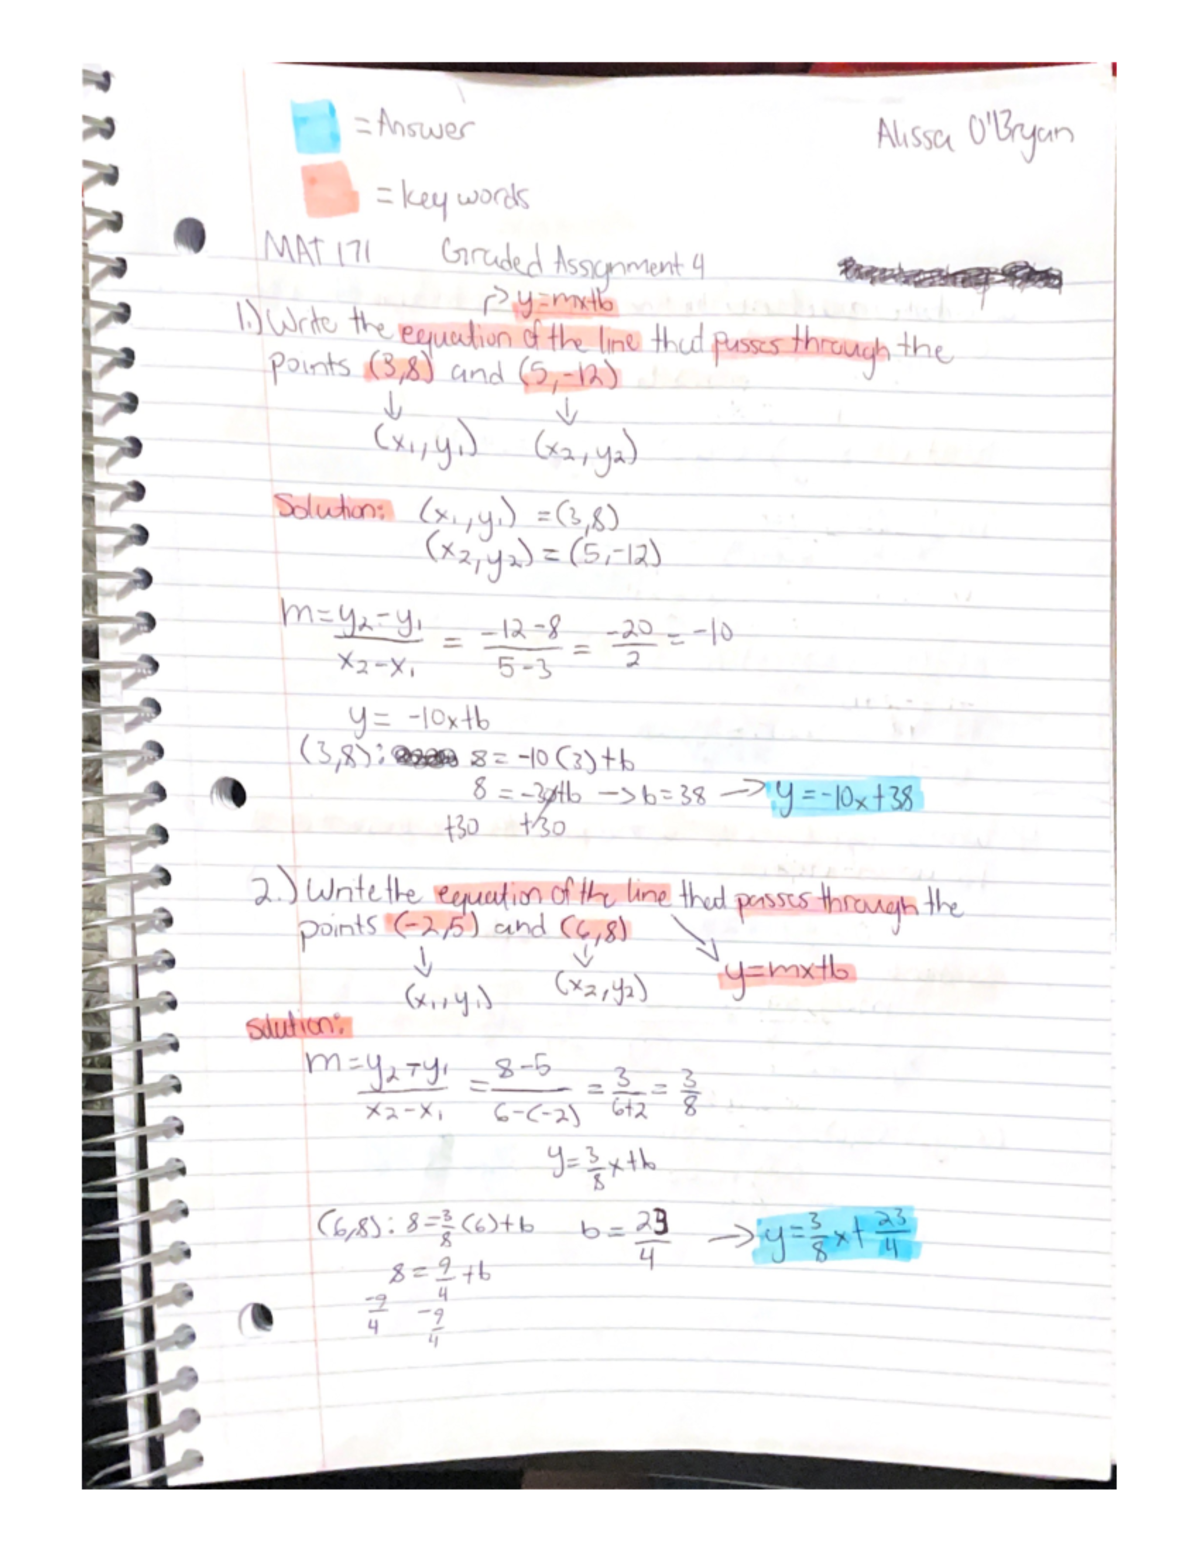 = Answer
Alissa O'Bryan
= key words
MAT 171 Graded Assignment 4
→ y=mx+b
1.) Write the equation of the line that passes through the
points (3,8) and (5,-12)
↓ ↓
(x₁, y₁) (x₂, y₂)
Solution: (x₁, y₁) = (3,8)
(x₂, y₂) = (5,-12)
m = y₂-y₁ / x₂-x₁ = -12-8 / 5-3 = -20/2 = -10
y = -10x+b
(3,8): 8 = -10(3)+b
8 = -30+b → b=38 → y=-10x+38
+30 +30
2.) Write the equation of the line that passes through the
points (-2,5) and (6,8)
↓ ↓ y=mx+b
(x₁, y₁) (x₂, y₂)
Solution:
m = y₂-y₁ / x₂-x₁ = 8-5 / 6-(-2) = 3/6+2 = 3/8
y = 3/8 x+b
(6,8): 8 = 3/8 (6)+b b = 23/4 → y = 3/8 x + 23/4
8 = 9/4 + b
-9/4 -9/4